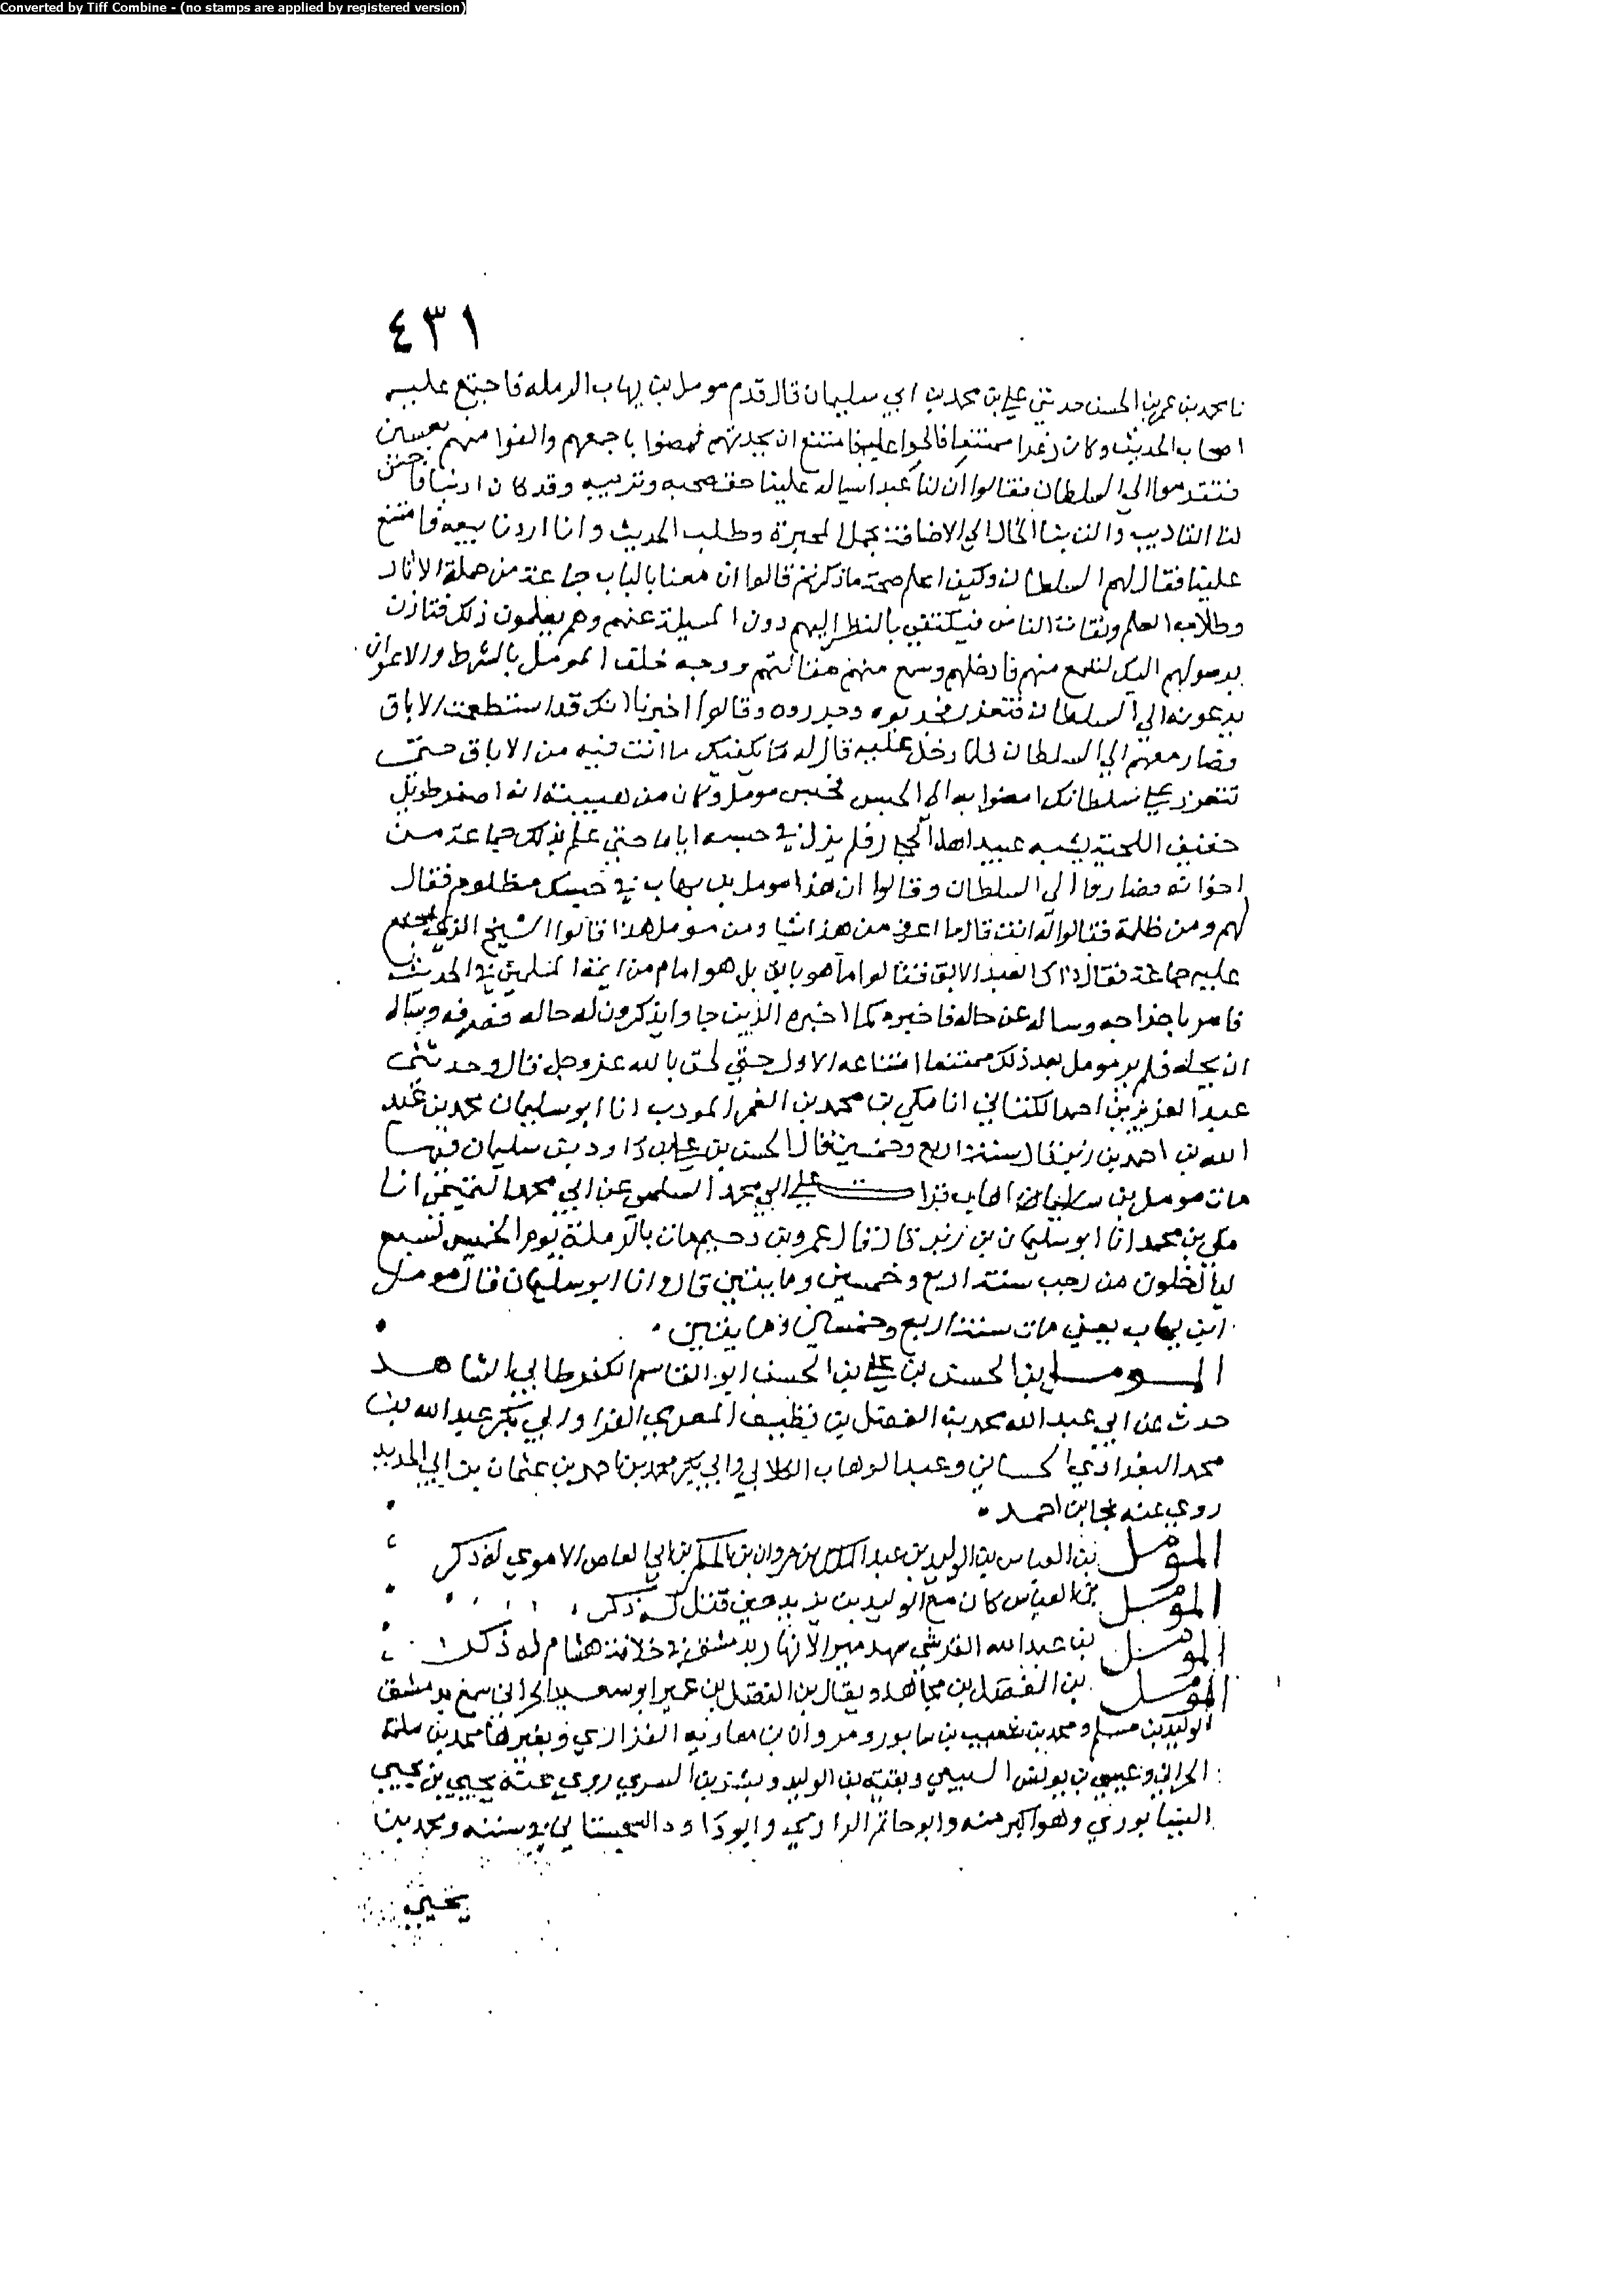 Converted by Tiff Combine - (no stamps are applied by registered version)
٤٣١
نا محمد بن عمر بن الحسن حدثني علي بن محمد بن ابي سليمان قال قدم مومل بن يهاب الرمله فاجتمع عليه
اصحاب الحديث وكان زعرا ممتنعا فالحوا عليه فامتنع ان يحدثهم فمضوا باجمعهم والفوا منهم
فتقدموا الي السلطان فقالوا ان لنا عبدا له علينا حق صحبه وتربيه وقد كان ادبنا فاحسن
لنا التاديب والت بنا الحال الي الاضاقة بحمل المحبرة وطلب الحديث وانا اردنا بيعه فامتنع
علينا فقال لهم السلطان وكيف اعلم صحة ما ذكرتم قالوا ان معنا بالباب جماعة من حملة الاثار
وطلاب العلم وثقات الناس فيكتفي بالنظر اليهم دون المسيلة عنهم وهم يعلمون ذلك فتاذن
بوصولهم اليك لتسمع منهم فادخلهم وسمع منهم مقالتهم ووجه خلف المومل بالشرط والاعوان
يدعونه الي السلطان فتعزز فجذبوه وجرروه وقالوا اخبرنا انك قد استطعمت الاباق
فصار معهم الي السلطان فلما دخل عليه قال له ما يكفيك ما انت فيه من الاباق حتي
تتعزز علي سلطانك امضوا به الي الحبس فحبس مومل وكان من هييته انه اصفر طويل
خفيف اللحية يشبه عبيد اهل الحجاز فلم يزل في حبسه اياما حتي علم بذلك جماعة من
اخوانه فصاروا الي السلطان وقالوا ان هذا مومل بن يهاب في حبسك مظلوم فقال
لهم ومن ظلمه فقالوا له انت قال ما اعرف من هذا شيا ومن مومل هذا قالوا الشيخ الذي اجتمع
عليه جماعة فقال ذاك العبد الابق فقالوا ما هو بابق بل هو امام من ايمة المسلمين في الحديث
فامر باخراجه وساله عن حاله فاخبره كما اخبره الذين جاوا يذكرون له حاله فصرفه وساله
ان يحله فلم ير مومل بعد ذلك ممتنعا امتناعه الاول حتي لحق بالله عز وجل قال وحدثني
عبد العزيز بن احمد الكتاني انا مكي بن محمد بن الغمر المودب انا ابو سليمان محمد بن عبد
الله بن احمد بن زبر قال سنة اربع وخمسين قال الحسن بن علي بن داود بن سليمان فيها
مات مومل بن يهاب قرات علي ابي محمد السلمي عن ابي محمد التميمي انا
مكي بن محمد انا ابو سليمان بن زبر قال قال عمرو بن دحيم مات بالرملة يوم الخميس لسبع
ليال خلون من رجب سنة اربع وخمسين ومايتين قال وانا ابو سليمان قال مومل
ابن يهاب يعني مات سنة اربع وخمسين ومايتين
المومل بن الحسن بن علي بن الحسن ابو القاسم الكفرطابي الشاهد
حدث عن ابي عبد الله محمد بن الفضل بن نظيف المصري الفرا وابي بكر عبد الله بن
محمد البغدادي الحساني وعبد الوهاب الكلابي وابي بكر محمد بن احمد بن عثمان بن ابي الحديد
روي عنه نجا بن احمد
المؤمل بن العباس بن الوليد بن عبد الملك بن مروان بن الحكم بن ابي العاص الاموي له ذكر
المؤمل بن العباس كان مع الوليد بن يزيد حين قتل له ذكر
المؤمل بن عبد الله القرشي شهد ميز الانهار بدمشق في خلافة هشام له ذكر
المؤمل بن الفضل بن مجاهد ويقال بن الفضل بن عمير ابو سعيد الحراني سمع بدمشق
الوليد بن مسلم ومحمد بن شعيب بن شابور ومروان بن معاويه الفزاري وبغيرها محمد بن سلمة
الحراني وعيسي بن يونس السبيعي وبقيه بن الوليد وبشر بن السري روي عنه يحيي بن يحيي
النيسابوري وهو اكبر منه وابو حاتم الرازي وابو داود السجستاني في سننه ومحمد بن
يحيي